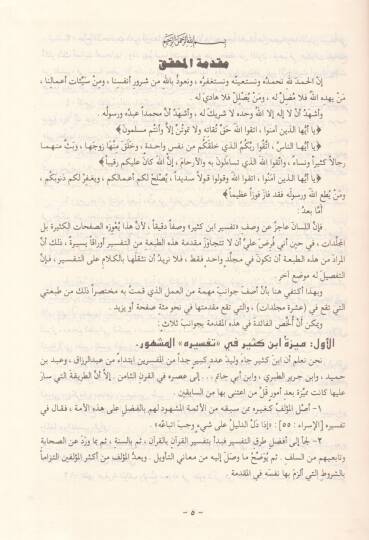 بسم الله الرحمن الرحيم
مقدمة المحقق
إنّ الحمدَ لله نحمدُه ونستعينُه ونستغفرُه، ونعوذُ بالله من شرورِ أنفسِنا، ومِنْ سيِّئات أعمالِنا،
مَنْ يهدِهِ اللهُ فلا مُضِلَّ له، ومَنْ يُضْلِلْ فلا هاديَ له
وأشهدُ أنْ لا إله إلا اللهُ وحده لا شريكَ له، وأشهدُ أنَّ محمداً عبدُه ورسولُه.
﴿يا أيُّها الذين آمنوا، اتقوا اللهَ حقَّ تُقاته ولا تموتُنَّ إلاَّ وأنتم مسلمونَ﴾
﴿يا أيُّها الناسُ، اتَّقُوا ربَّكُمُ الذي خلقكُم من نفسٍ واحدةٍ، وخلَقَ منْها زوجَها، وبَثَّ منهما
رجالاً كثيراً ونساءً، واتقوا الله الذي تساءلونَ به والأرحامَ، إنَّ اللهَ كانَ عليكم رقيباً﴾
﴿يا أيُّها الذين آمنوا، اتقوا اللهَ وقولوا قولاً سديداً، يُصْلِحْ لكم أعمالكم، ويغفِرْ لكم ذنوبَكُم،
ومَنْ يُطعِ اللهَ ورسولَه فقد فازَ فوزاً عظيماً﴾
أمَّا بعدُ:
فإنَّ اللسانَ عاجزٌ عن وصفِ «تفسير ابن كثير» وصفاً دقيقاً، لأنَّ هذا يُعْوِزه الصفحات الكثيرة بل
المجلّدات، في حين أني فُرضَ عليَّ أن لا تتجاوزَ مقدمة هذه الطبعة من التفسير أوراقاً يسيرة، ذلك أنَّ
المرادَ من هذه الطبعة أن تكونَ في مجلّدٍ واحدٍ فقط، فلا نريدُ أن نثقلَها بالكلامِ على التفسير، فإنَّ
التفصيل له موضع آخر.
وبهذا أكتفي هنا بأن أصفَ جوانبَ مهمة من العمل الذي قمتُ به مختصراً ذلك من طبعتي
التي تقع في (عشرة مجلدات)، والتي تقع مقدمتها في نحو مئة صفحة أو يزيد.
ويمكن أنْ أُلخّص الفائدة في هذه المقدمة بجوانبَ ثلاثٍ:
الأول: ميزة ابن كثير في «تفسيره» المشهور.
نحن نعلم أن ابنَ كثير جاء وليدَ عددٍ كبيرٍ جداً من المفسرين ابتداءً من عبدالرزاق، وعبد بن
حميد، وابن جرير الطبري، وابن أبي حاتم... إلى عصره في القرن الثامن. إلاَّ أنَّ الطريقة التي سار
عليها كانت مميَّزة بعدة أمور قلَّ من اعتنى بها من السابقين.
١- أصَّل المؤلِّف كغيره ممن سبقه من الأئمة المشهود لهم بالفضل على هذه الأمة، فقال في
تفسيره [الإسراء: ٥٥]: «إذا دَلَّ الدليلُ على شيءٍ وجبَ اتباعُه».
٢- لجأ إلى أفضل طرق التفسير فبدأ بتفسير القرآن بالقرآن، ثم بالسنة، ثم بما ورَد عن الصحابة
وتابعيهم من السلف. ثم يُوضِّحُ ما وصَل إليه من معاني التأويل. ويعدُّ المؤلف من أكثر المؤلفين التزاماً
بالشروط التي ألزمَ بها نفسَه في المقدمة.
- ٥ -